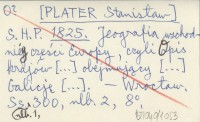 [PLATER Stanisław]
S.H.P. 1825. Jeografia wschod-
niéj części Europy, czyli Opis
krajów [...] obejmujący [...]
Galicję [...]. — Wrocław.
Ss. 300, nlb. 2, 8°